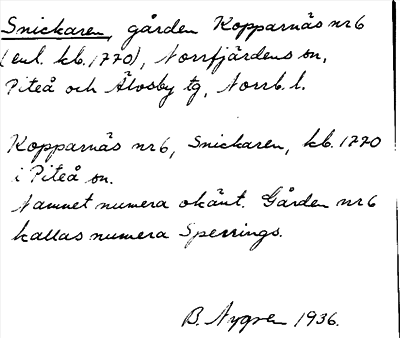 Snickaren, gården Kopparnäs nr 6
(enl. kb. 1770), Norrfjärdens sn,
Piteå och Älvsby tg, Norrb. l.
Kopparnäs nr 6, Snickaren, kb. 1770
i Piteå sn.
Namnet numera okänt. Gården nr 6
kallas numera Sperrings.
B. Nygren 1936.